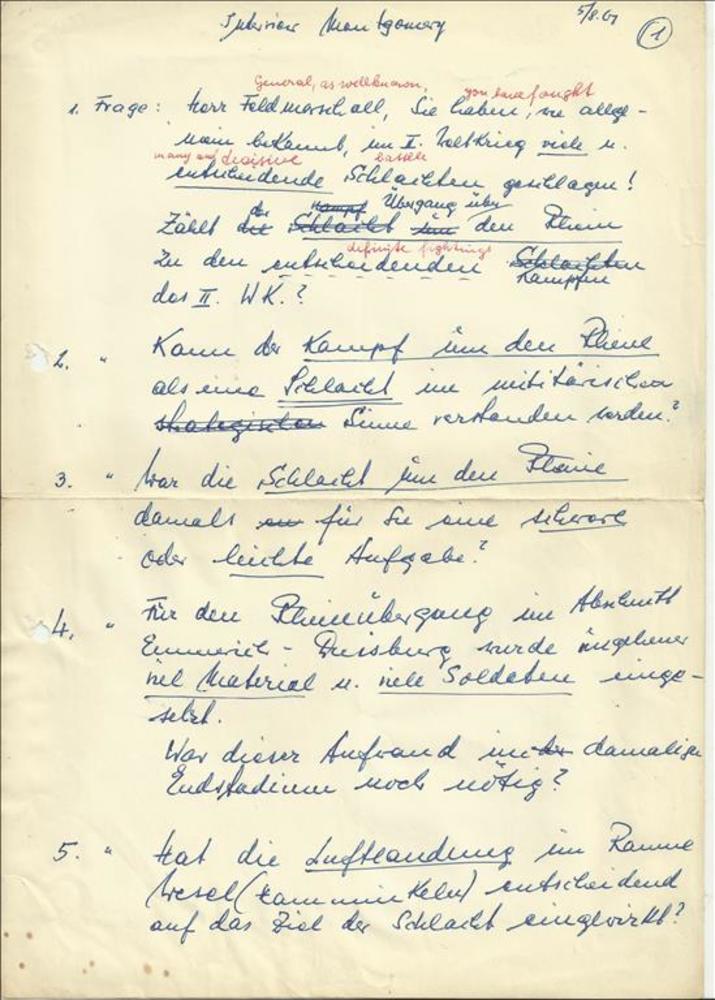 Interview Montgomery
5/8.61
1
General, as wellknown, you have fought
1. Frage: Herr Feldmarschall, Sie haben, wie allge-
mein bekannt, im II. Weltkrieg viele u.
many and decisive battle
entscheidende Schlachten geschlagen!
der Kampf Übergang über
Zählt die Schlacht um den Rhein
definite fightings
zu den entscheidenden Schlachten
Kämpfen
des II. WK.?
2. " Kann der Kampf um den Rhein
als eine Schlacht im militärischen
strategischen Sinne verstanden werden?
3. " War die Schlacht um den Rhein
damals für Sie eine schwere
oder leichte Aufgabe?
4. " Für den Rheinübergang im Abschnitt
Emmerich - Duisburg wurde ungeheuer
viel Material u. viele Soldaten einge-
setzt.
War dieser Aufwand im damaligen
Endstadium noch nötig?
5. " Hat die Luftlandung im Raume
Wesel (Hamminkeln) entscheidend
auf das Ziel der Schlacht eingewirkt?